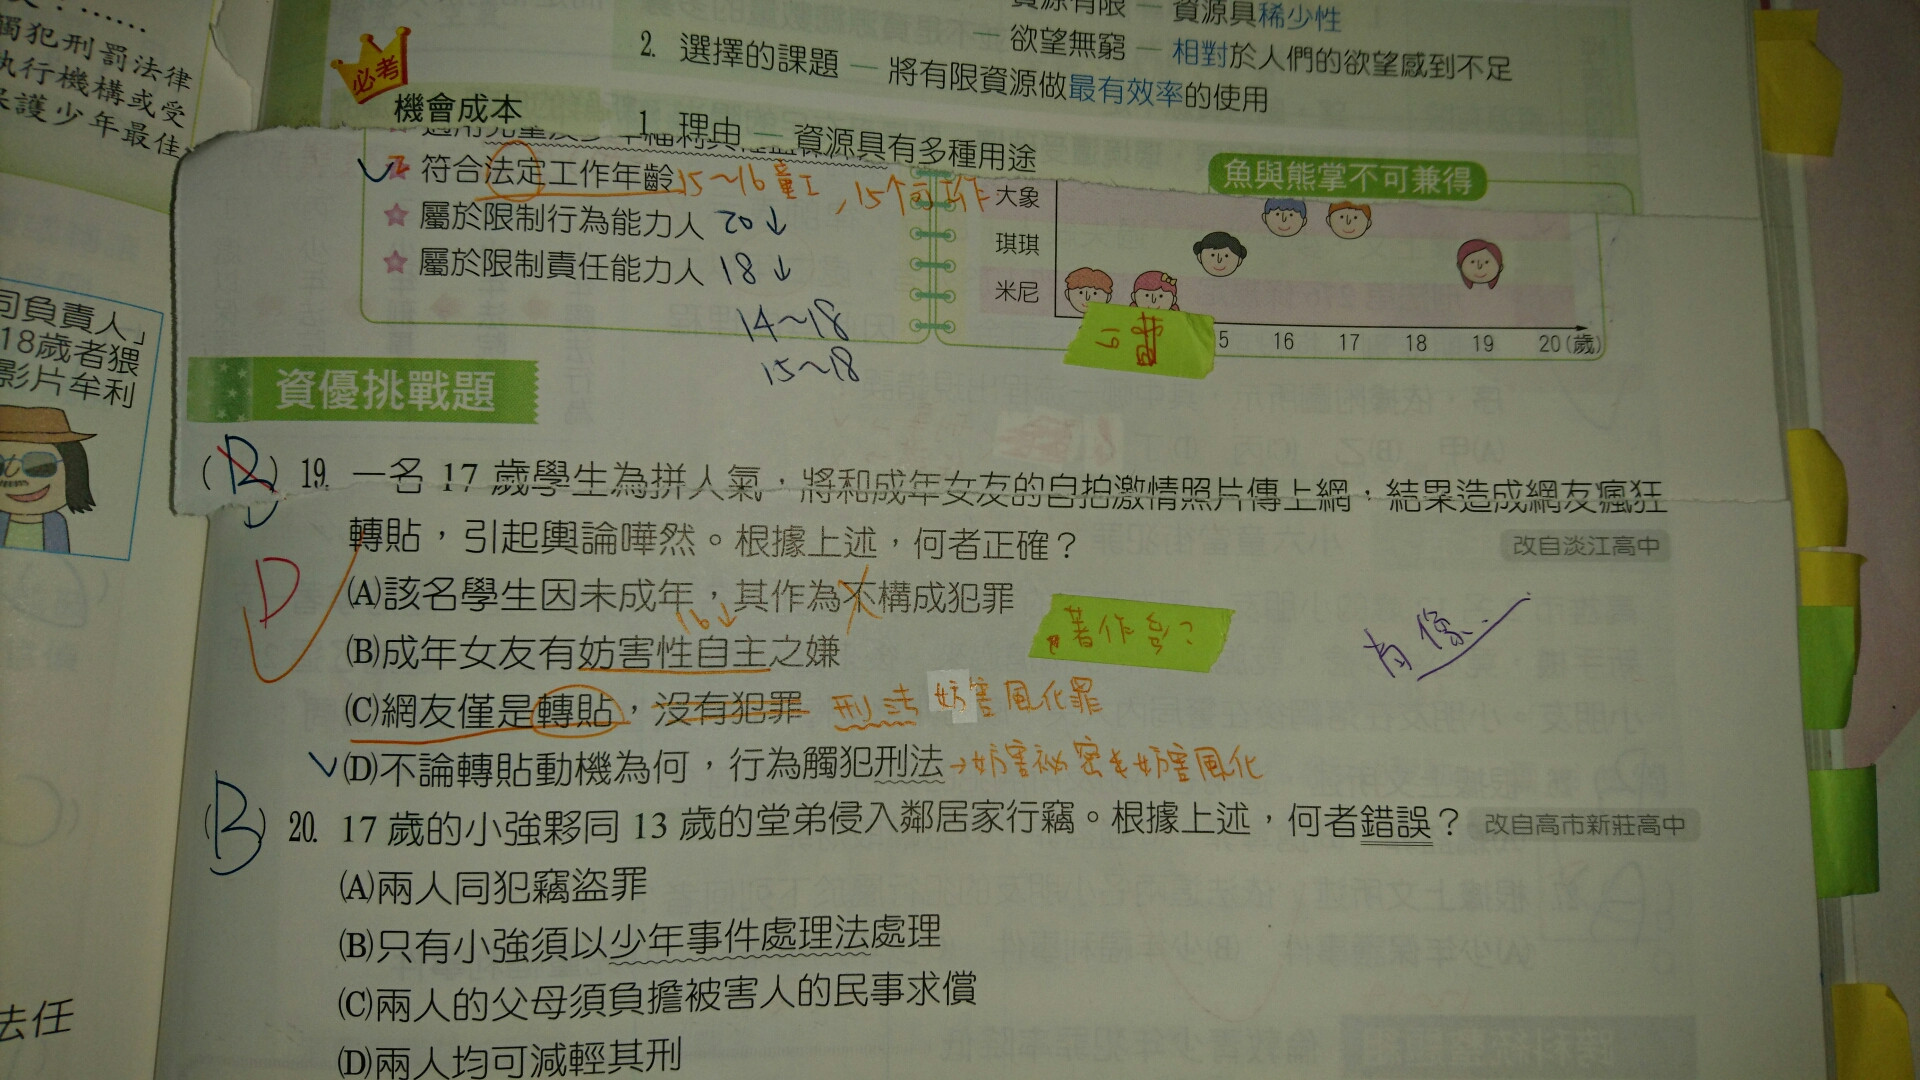 觸犯刑罰法律
執行機構或受
保護少年最佳
資源有限 — 資源具稀少性
— 欲望無窮 — 相對於人們的欲望感到不足
2. 選擇的課題 — 將有限資源做最有效率的使用
必考
機會成本
1. 理由 — 資源具有多種用途
魚與熊掌不可兼得
符合法定工作年齡 15~16童工,15↑可工作
屬於限制行為能力人 20↓
屬於限制責任能力人 18↓
14~18
15~18
大象
琪琪
米尼
5 16 17 18 19 20(歲)
司負責人」
18歲者猥
影片牟利
資優挑戰題
(B) 19. 一名 17 歲學生為拼人氣,將和成年女友的自拍激情照片傳上網,結果造成網友瘋狂
轉貼,引起輿論嘩然。根據上述,何者正確?
改自淡江高中
D
(A)該名學生因未成年,其作為不構成犯罪
16↓
(B)成年女友有妨害性自主之嫌
著作
肖像
(C)網友僅是轉貼,沒有犯罪 刑法 妨害風化罪
(D)不論轉貼動機為何,行為觸犯刑法→妨害祕密&妨害風化
(B) 20. 17 歲的小強夥同 13 歲的堂弟侵入鄰居家行竊。根據上述,何者錯誤?
改自高市新莊高中
(A)兩人同犯竊盜罪
(B)只有小強須以少年事件處理法處理
(C)兩人的父母須負擔被害人的民事求償
(D)兩人均可減輕其刑
法任